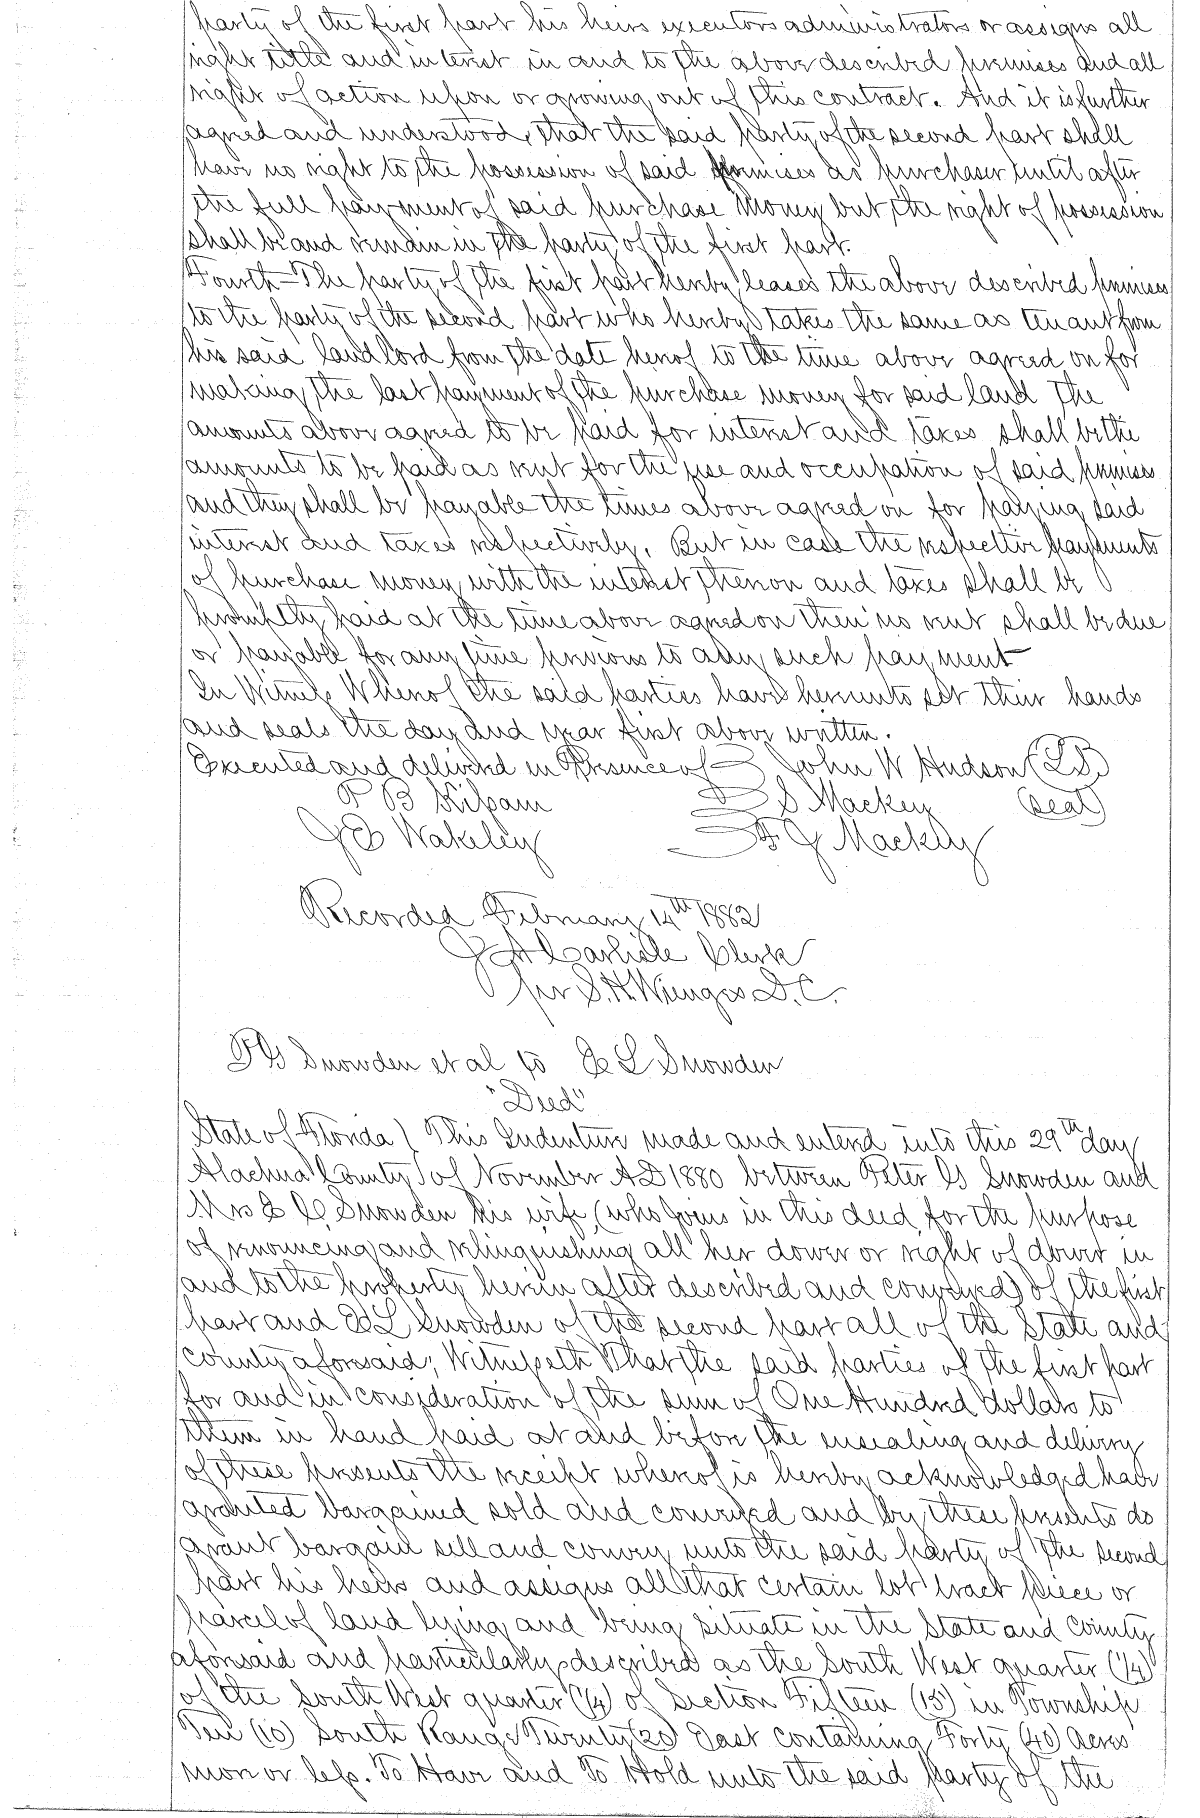 party of the first part his heirs executors administrators or assigns all
right title and interest in and to the above described premises and all
right of action upon or growing out of this contract. And it is further
agreed and understood, that the said party of the second part shall
have no right to the possession of said premises as purchaser until after
the full payment of said purchase money but the right of possession
shall be and remain in the party of the first part.
Fourth - The party of the first part hereby leases the above described premises
to the party of the second part who hereby takes the same as tenant from
his said landlord from the date hereof to the time above agreed on for
making the last payment of the purchase money for said land The
amounts above agreed to be paid for interest and taxes shall be the
amounts to be paid as rent for the use and occupation of said premises
and they shall be payable the times above agreed on for paying said
interest and taxes respectively. But in case the respective payments
of purchase money with the interest thereon and taxes shall be
promptly paid at the time above agreed on then no rent shall be due
or payable for any time previous to any such payment
In Witness Whereof the said parties have hereunto set their hands
and seals the day and year first above written.
Executed and delivered in Presence of John W Hudson (L.S.)
P B Kilpam S Mackey (seal)
J E Wakeley F J Mackey
Recorded February 14th 1882
J A Carlisle Clerk
per S. H. Wienges D.C.
P G Snowden et al to E L Snowden
"Deed"
State of Florida } This Indenture made and entered into this 29th day
Alachua County } of November AD 1880 between Peter G Snowden and
Mrs E C Snowden his wife (who joins in this deed for the purpose
of renouncing and relinquishing all her dower or right of dower in
and to the property herein after described and conveyed) of the first
part and E L Snowden of the second part all of the State and
county aforesaid; Witnesseth That the said parties of the first part
for and in consideration of the sum of One Hundred dollars to
them in hand paid at and before the ensealing and delivery
of these presents the receipt whereof is hereby acknowledged have
granted bargained sold and conveyed and by these presents do
grant bargain sell and convey unto the said party of the second
part his heirs and assigns all that certain lot tract piece or
parcel of land lying and being situate in the State and County
aforesaid and particularly described as the South West quarter (1/4)
of the South West quarter (1/4) of Section Fifteen (15) in Township
Ten (10) South Range Twenty (20) East containing Forty (40) Acres
more or less. To Have and To Hold unto the said party of the